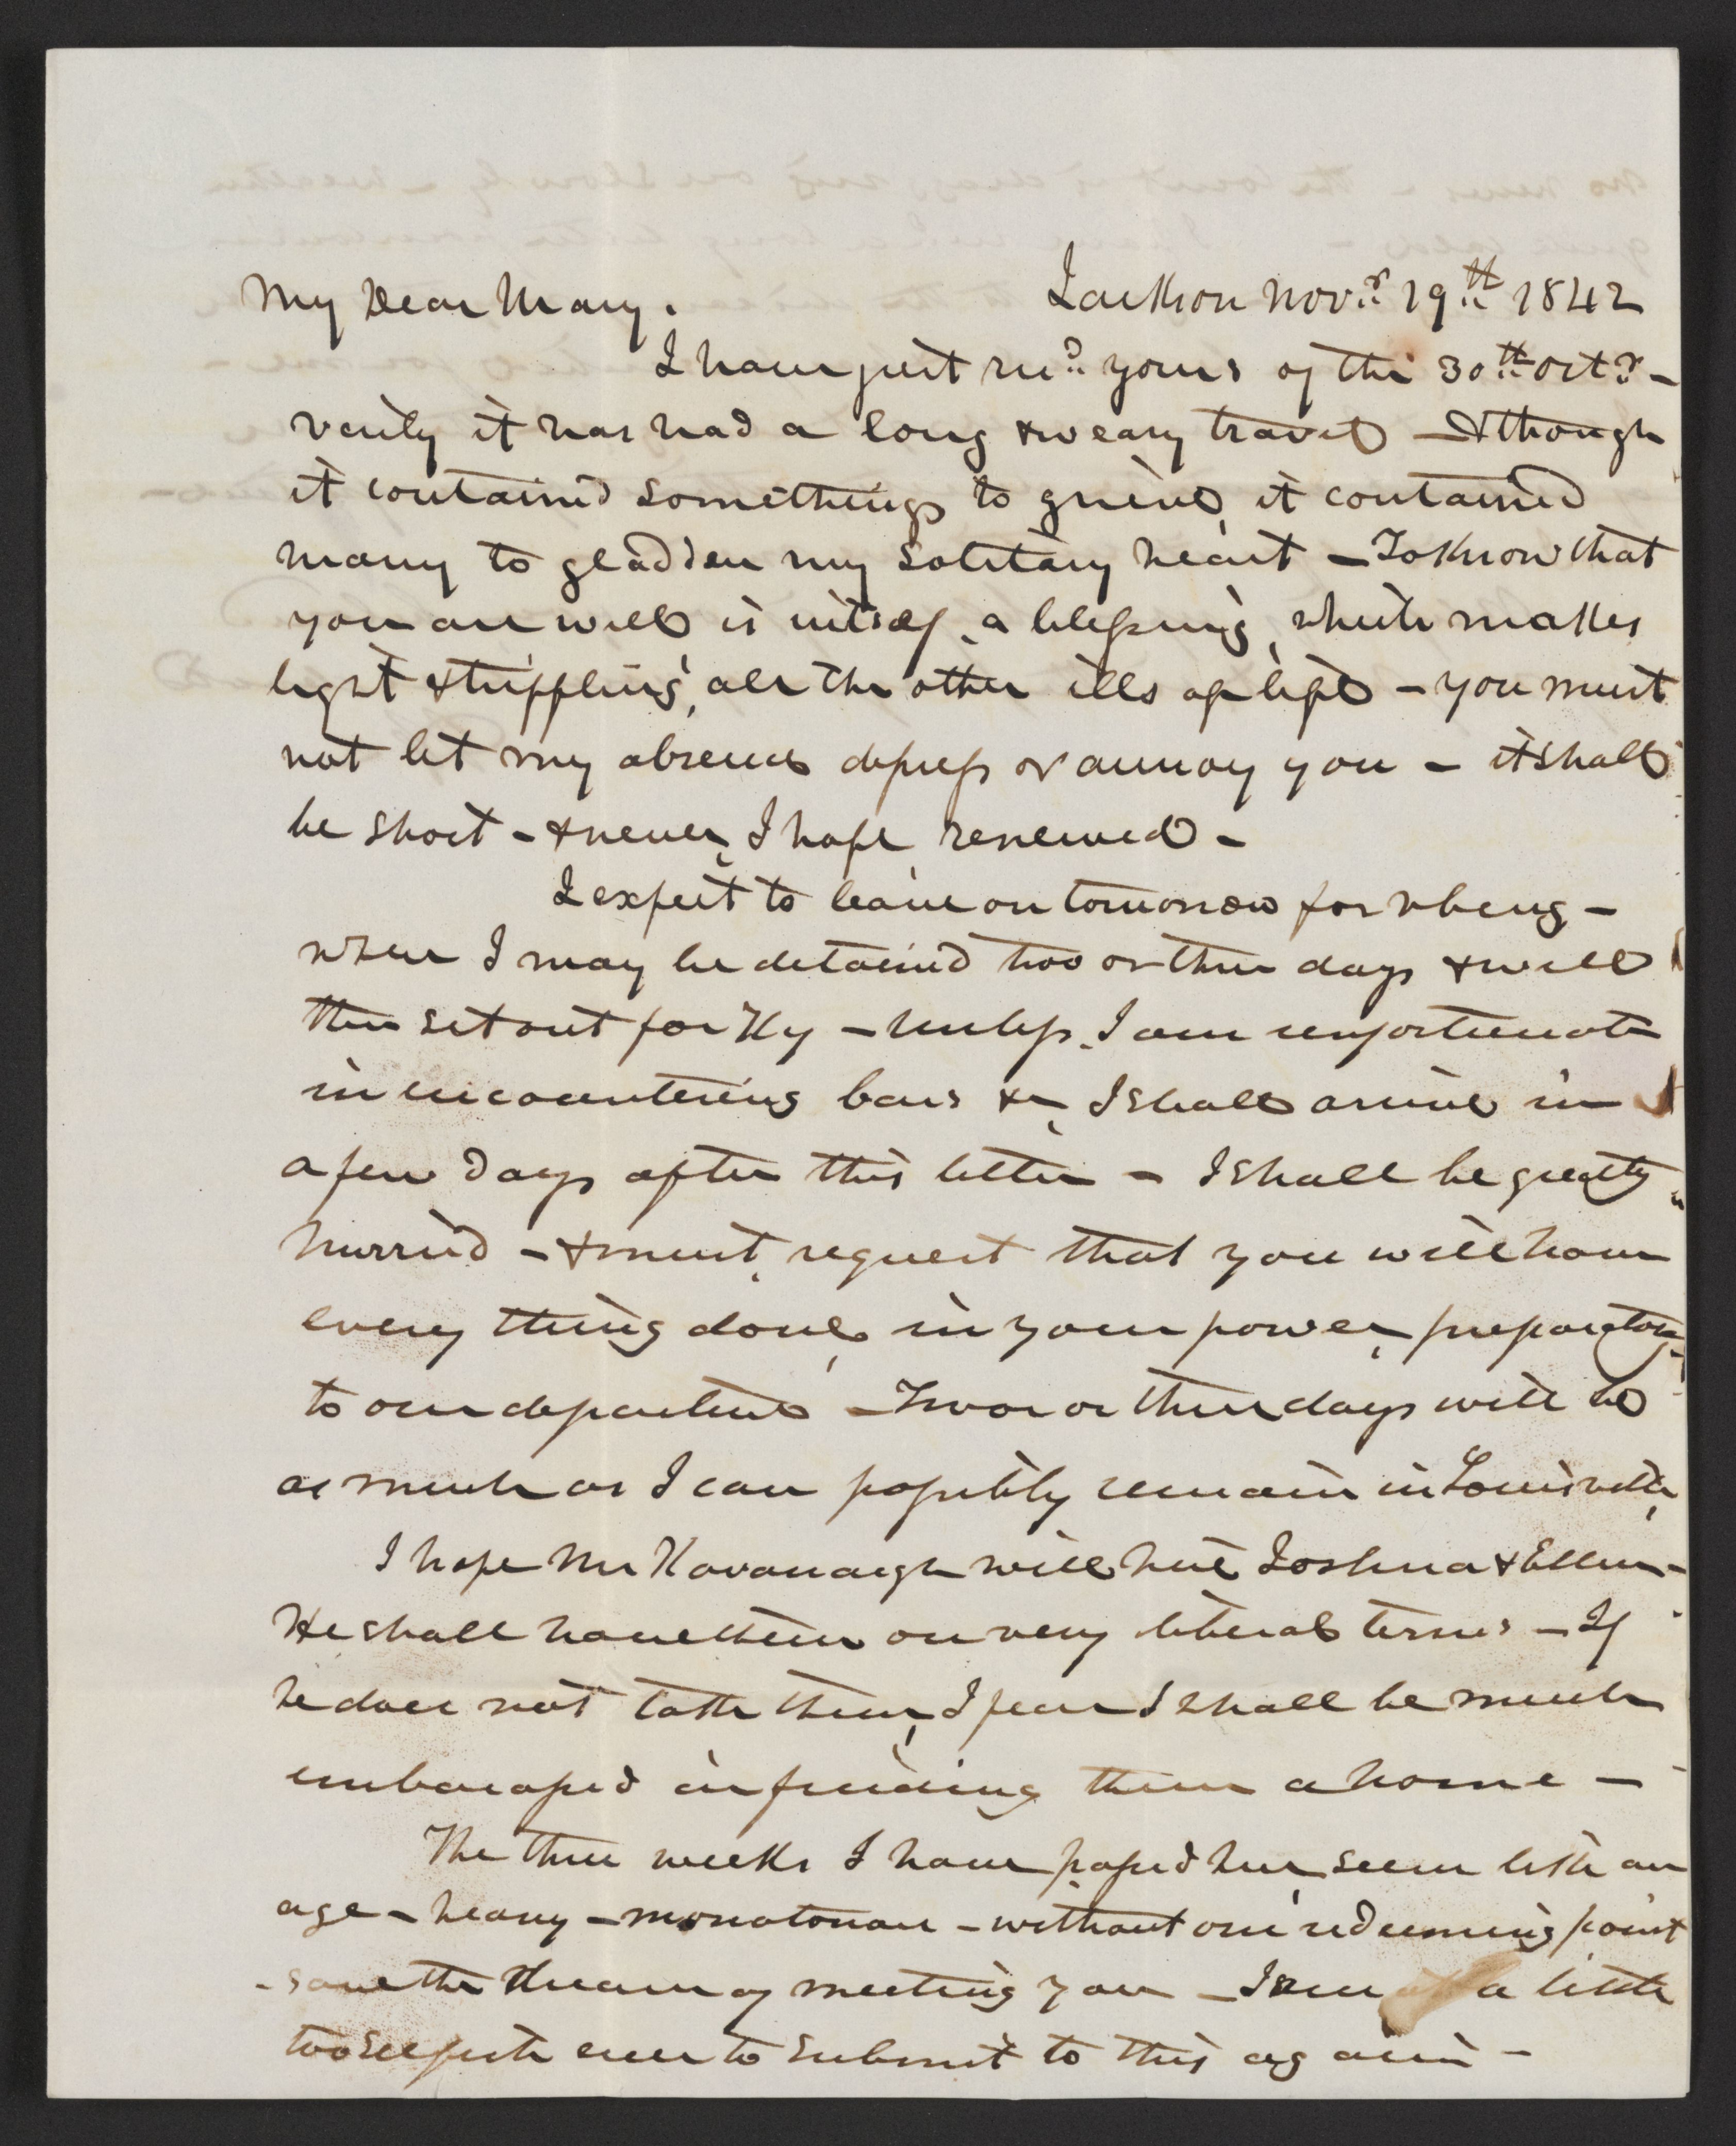 My Dear Mary. Jackson Novr. 19th 1842
I have just recd. yours of the 30th Octr. –
verily it has had a long & weary travel – Although
it contained some things to grieve, it contained
many to gladden my solitary heart – To know that
you are well is in itself, a blessing, which makes
light & triffling, all the other ills of life – you must
not let my absence depress or annoy you – it shall
be short – & never, I hope, renewed –
I expect to leave on tomorrow for Vburg –
where I may be detained two or three days & will
then set out for Ky – Unless, I am unfortunate
in encountering bars &c, I shall arrive in
a few days after this letter – I shall be greatly
hurried – & must, request that you will have
every thing done, in your power, preparatory
to our departure – Two or three days will be
as much as I can possibly remain in Louisville,
I hope Mr Kavanaugh will hire Joshua & Ellen –
He shall have them on very liberal terms – If
he does not take them, I fear I shall be much
embarassed in finding them a home –
The three weeks I have passed here, seem like an
age – heavy – monotonous – without one redeeming point
– save the dream of meeting you – I am a little
too selfish ever to submit to this again –